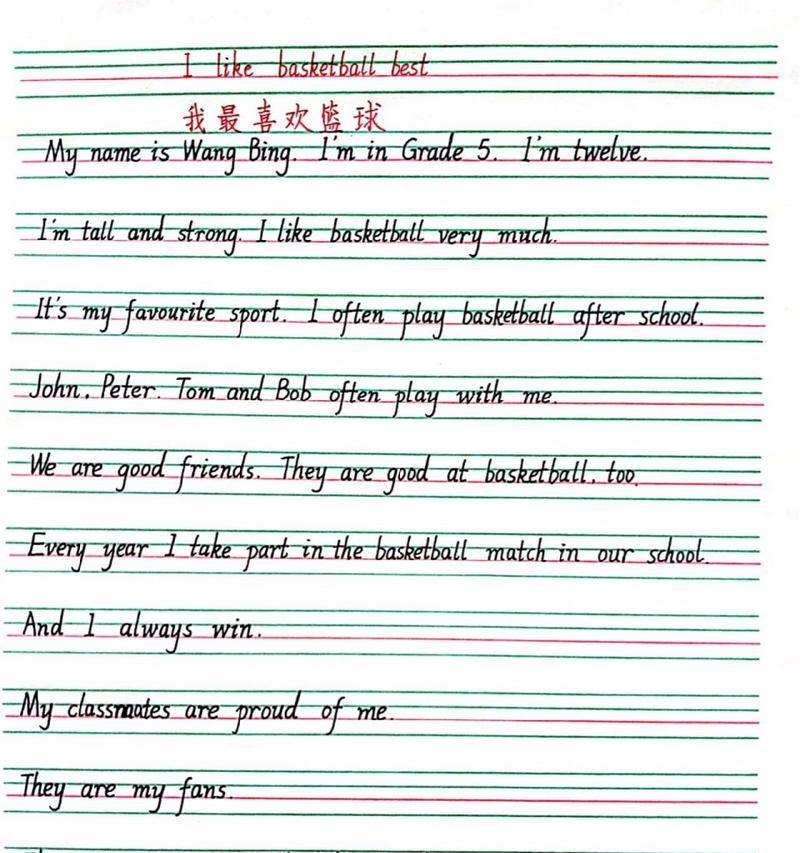 I like basketball best
我最喜欢篮球
My name is Wang Bing. I'm in Grade 5. I'm twelve.
I'm tall and strong. I like basketball very much.
It's my favourite sport. I often play basketball after school.
John, Peter. Tom and Bob often play with me.
We are good friends. They are good at basketball, too.
Every year I take part in the basketball match in our school.
And I always win.
My classmates are proud of me.
They are my fans.